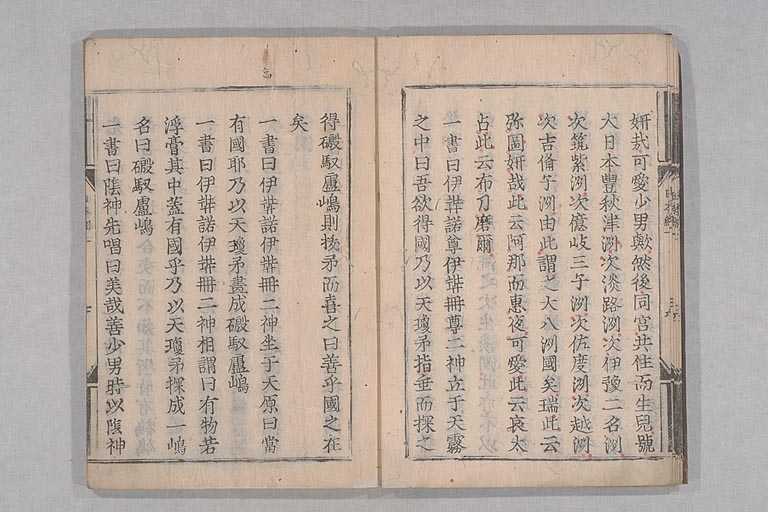 妍哉可愛少男歟然後同宮共住而生兒號
大日本豐秋津洲次淡路洲次伊豫二名洲
次筑紫洲次億岐三子洲次佐度洲次越洲
次吉備子洲由此謂之大八洲國矣瑞此云
弥圖妍哉此云阿那而惠夜可愛此云哀太
占此云布刀磨爾
一書曰伊弉諾尊伊弉冊尊二神立于天霧
之中曰吾欲得國乃以天瓊矛指垂而探之
得磤馭盧嶋則拔矛而喜之曰善乎國之在
矣
一書曰伊弉諾伊弉冊二神坐于天原曰當
有國耶乃以天瓊矛畫成磤馭盧嶋
一書曰伊弉諾伊弉冊二神相謂曰有物若
浮膏其中蓋有國乎乃以天瓊矛探成一嶋
名曰磤馭盧嶋
一書曰陰神先唱曰美哉善少男時以陰神